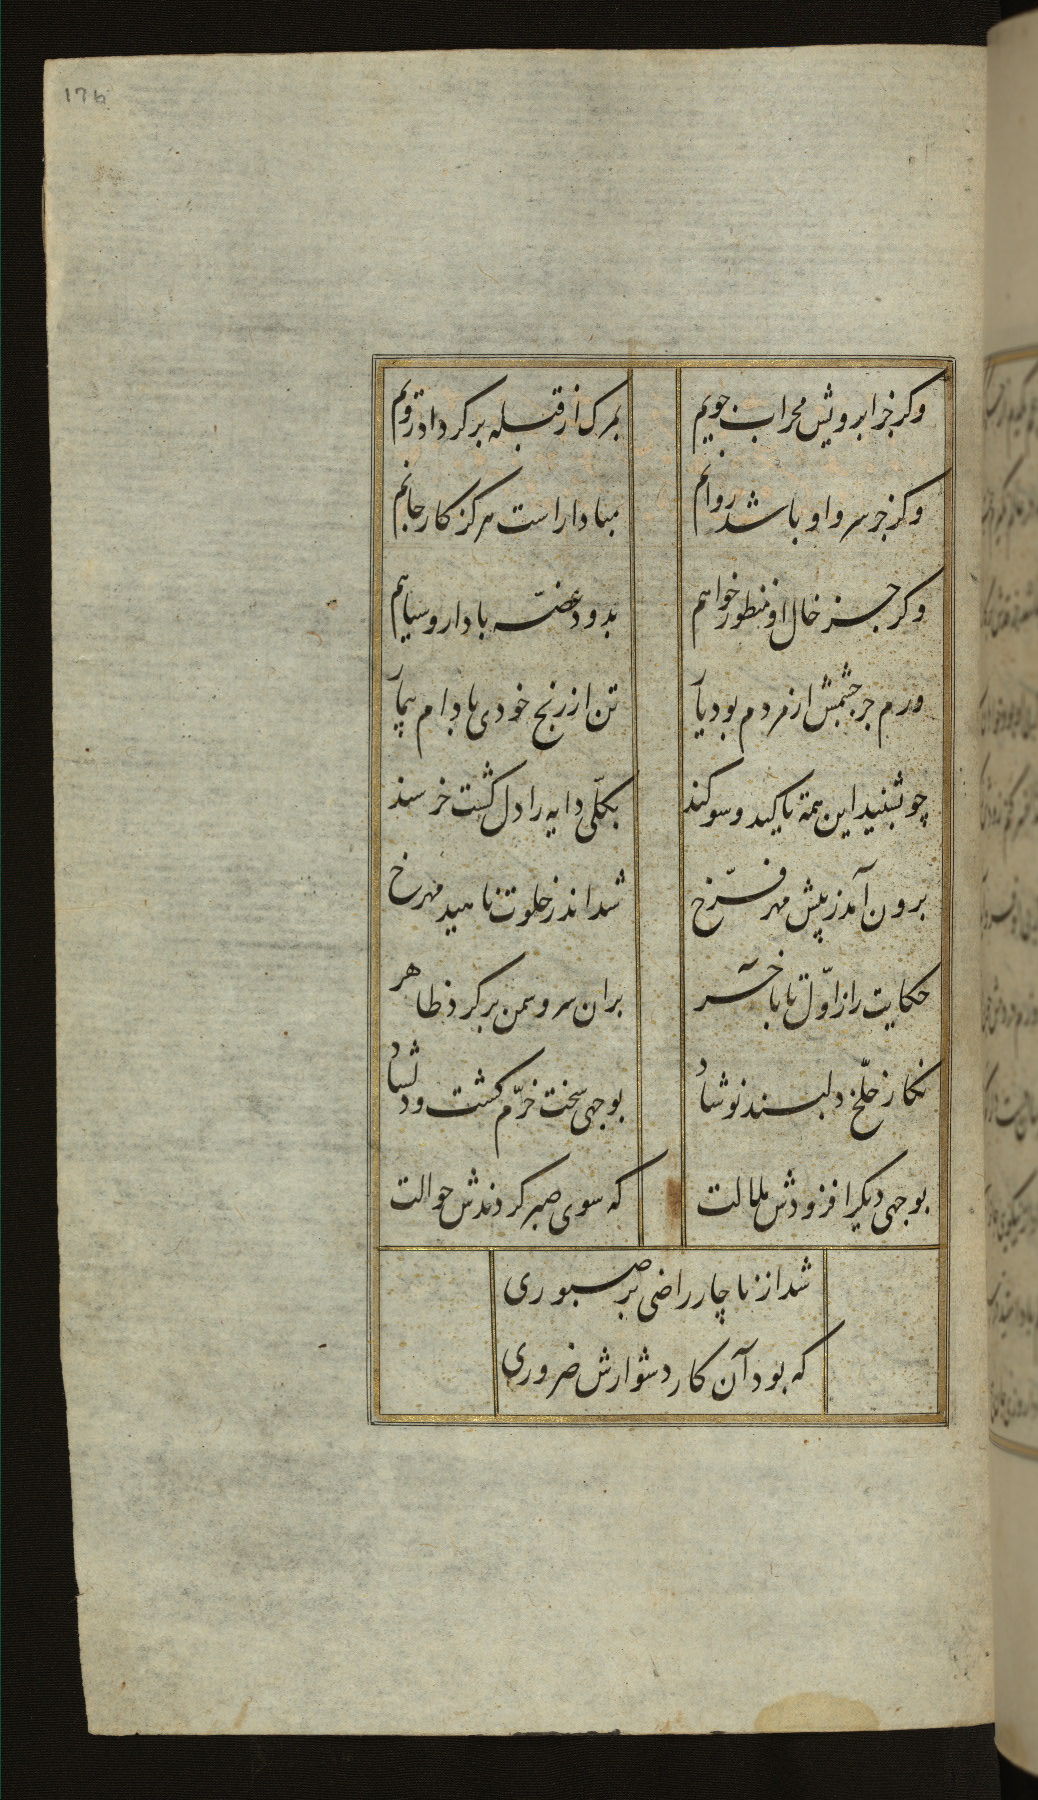 176
وکر جز ابرویش محراب جویم
بمرک از قبله برکرداد رویم
وکر جز سرو او باشد روانم
مبادا راست هرکز کار جانم
وکر جز خال او منظور خواهم
بدود غصّه بادا روسیاهم
ورم جز چشمش از مردم بود یار
تن از رنج خودی بادام بیمار
چو بشنید این همه تاکید و سوکند
بکلّی دایه را دل کشت خرسند
برون آمد ز پیش مهر فرّخ
شد اندر خلوت ناهید مهرخ
حکایت را ز اوّل تا بآخر
بران سرو سمن بر کرد ظاهر
نکار خلّخ دلبند نوشاد
بوجهی سخت خرّم کشت و دلشاد
بوجهی دیکر افزودش ملالت
که سوی صبر کردندش حوالت
شد از ناچار راضی بر صبوری
که بود آن کار دشوارش ضروری